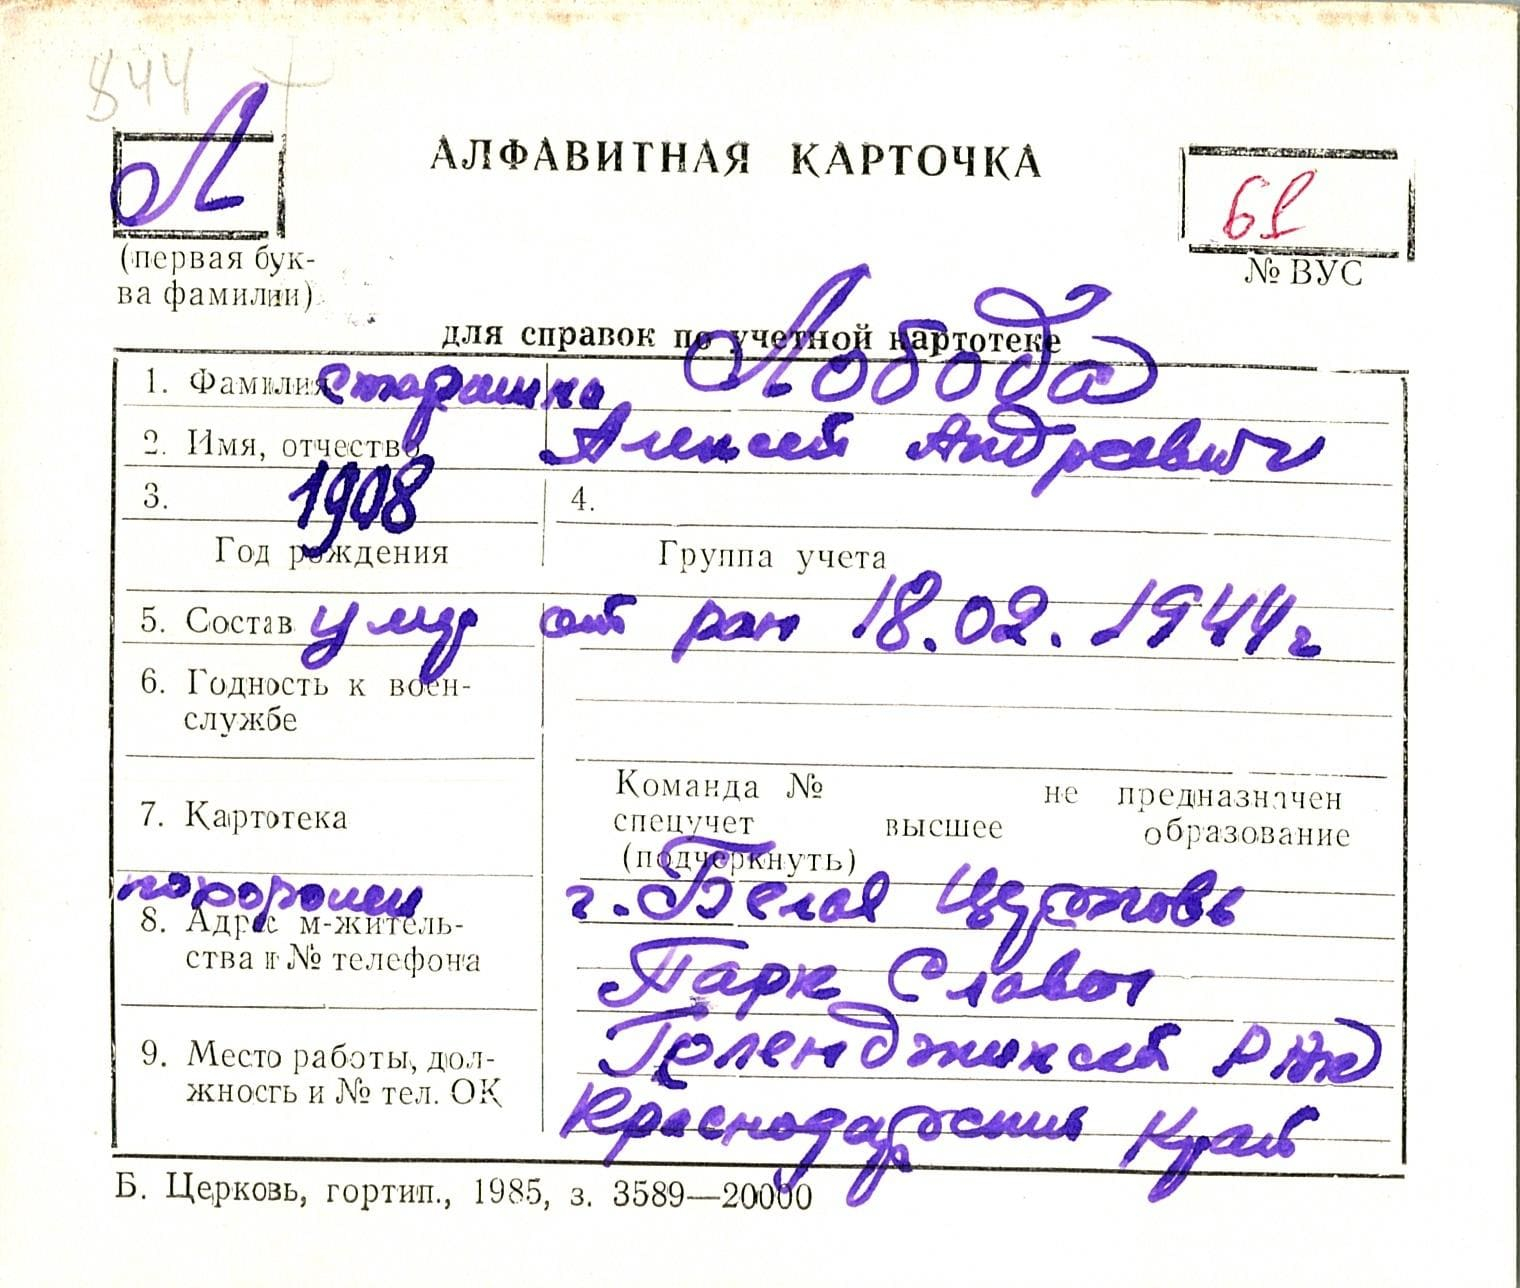 844
Л
АЛФАВИТНАЯ КАРТОЧКА
61
(первая бук-
ва фамилии)
№ ВУС
для справок по учетной картотеке
1. Фамилия старшина Лобода
2. Имя, отчество Алексей Андреевич
3. 1908 4.
Год рождения Группа учета
5. Состав умер от ран 18.02.1944 г
6. Годность к воен-
службе
Команда № не предназначен
7. Картотека спецучет высшее образование
(подчеркнуть)
похоронен г. Белая Церковь
8. Адрес м-житель-
ства и № телефона Парк Славы
9. Место работы, дол-
жность и № тел. ОК
Краснодарский Край
Б. Церковь, гортип., 1985, з. 3589—20000